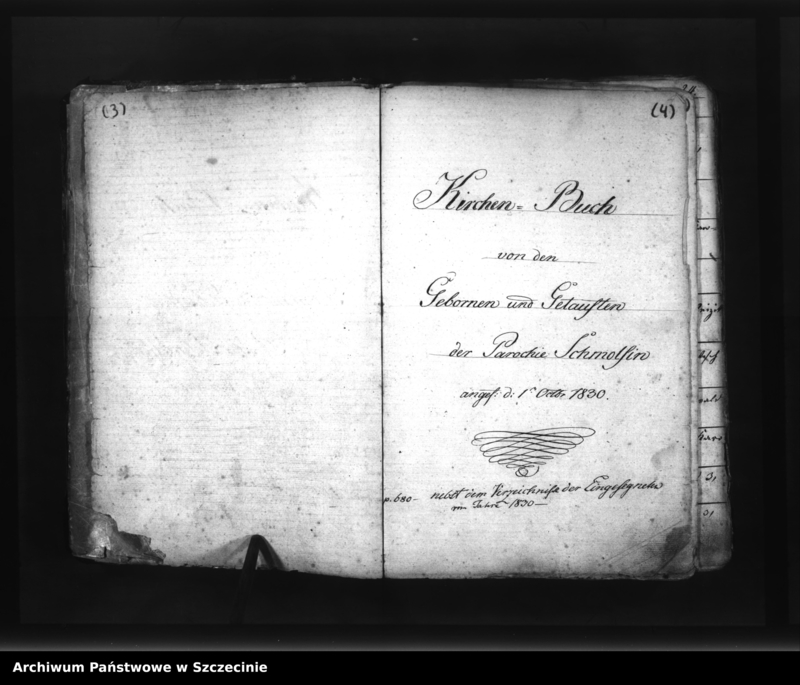 (3)
(4)
Kirchen= Buch
von den
Gebornen und Getauften
der Parochie Schmolsin
angef. d: 1ᵗ Octbr 1830.
p. 680 – nebst dem Verzeichniß der Eingesegneten
im Jahre 1830 —
Archiwum Państwowe w Szczecinie